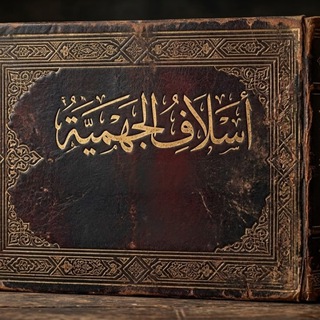 أسلافُ الجهميَّةُ